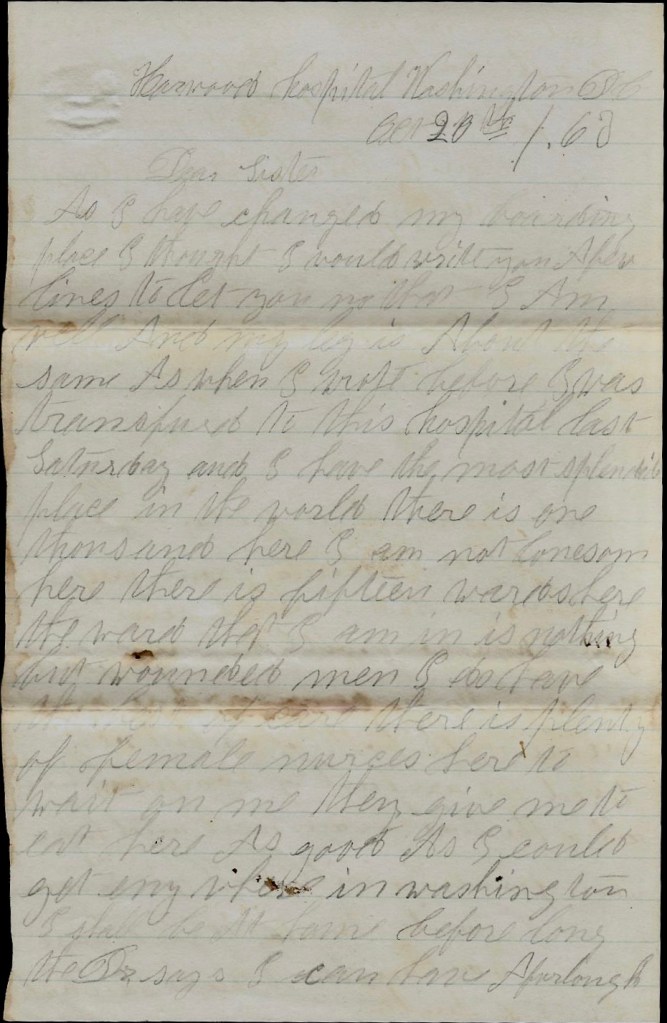 Harwood hospital Washington D C
Oct 20th /. 63
Dear Sister
As I have changed my boarding
place I thought I would write you A few
lines to let you no that I Am
well And my leg is About the
same As when I wrote before I was
transfured to this hospital last
Saturday and I have the most splendid
place in the world there is one
thousand here I am not lonesom
here there is fifteen wards here
the ward that I am in is nothing
but wounded men I do have
the best of care there is plenty
of female nurces here to
wait on me they give me to
eat here As good As I could
get eny where in washington
I shal be At home before long
the Dr says I can have A furlough